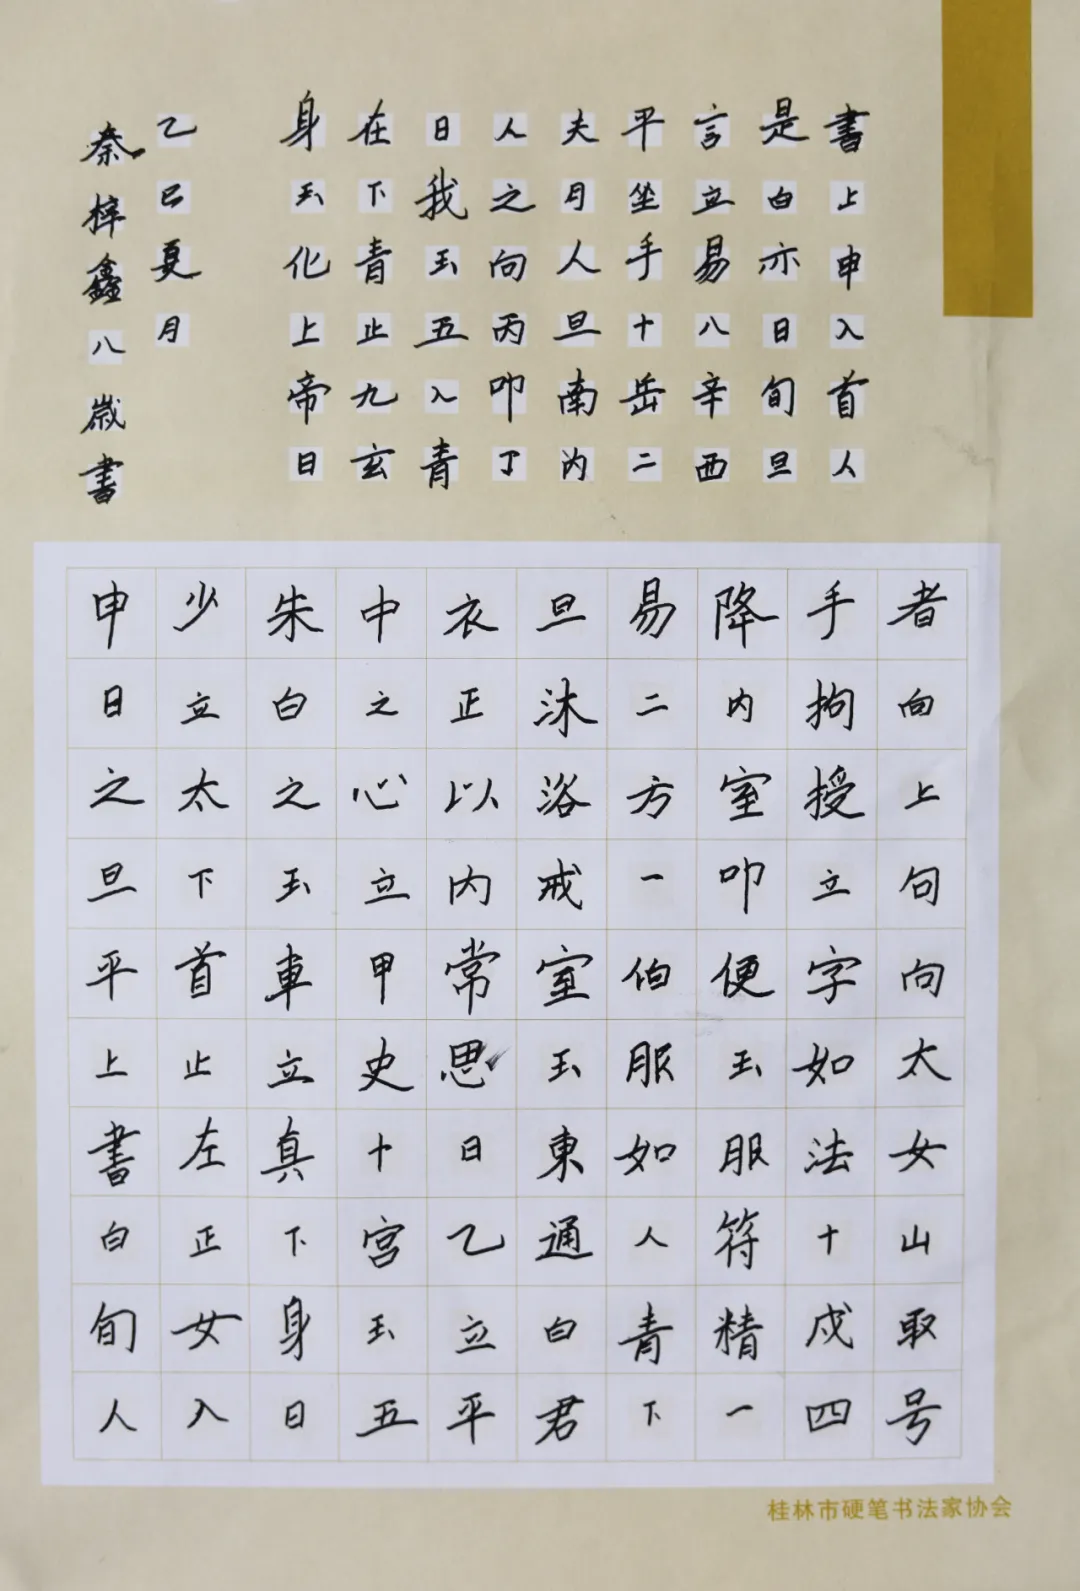 書上申入首人
是白亦日旬旦
言立易八辛西
平坐手十岳二
夫月人旦南内
人之向丙叩丁
日我玉五入青
在下青止九玄
身玉化上帝日
乙巳夏月
秦梓鑫八歲書
者向上句向太女山取号
手拘授立字如法十戍四
降内室叩便玉服符精一
易二方一伯服如人青下
旦沐浴戒室玉東通白君
衣正以内常思日乙立平
中之心立甲史十宫玉五
朱白之玉車立真下身日
少立太下首止左正女入
申日之旦平上書白旬人
桂林市硬笔书法家协会